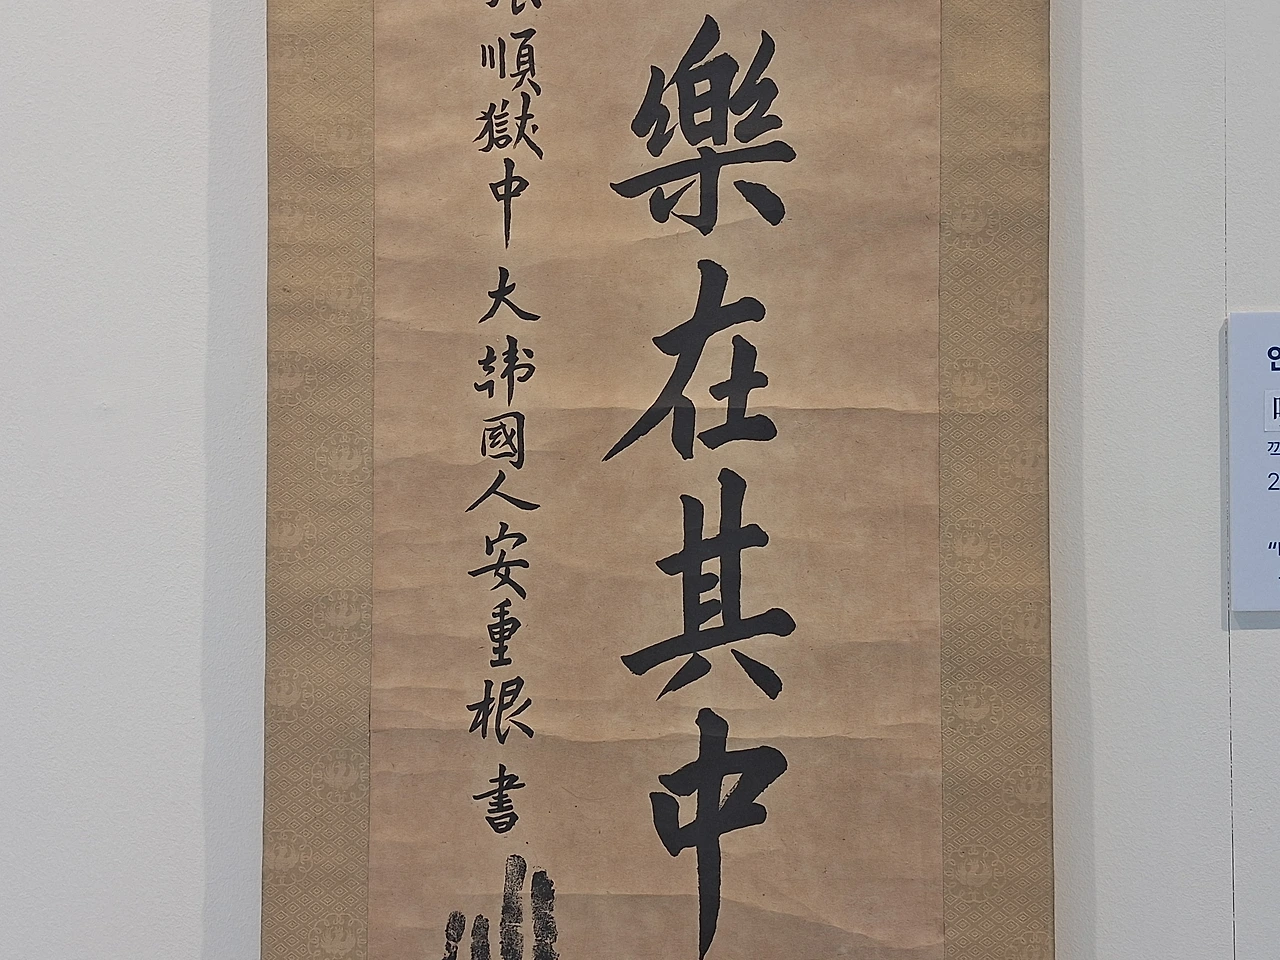 樂在其中
順獄中 大韓國人 安重根 書
2